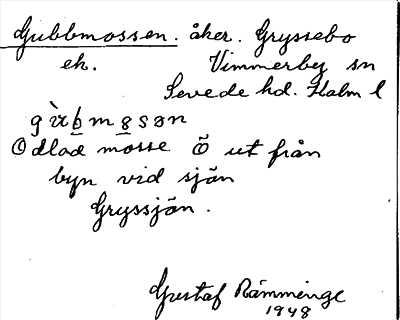 Gubbmossen. åker. Gryssebo
ek. Vimmerby sn
Sevede hd. Kalm l
Odlad mosse Ö ut från
byn vid sjön
Gryssjön.
Gustaf Rämminge
1948